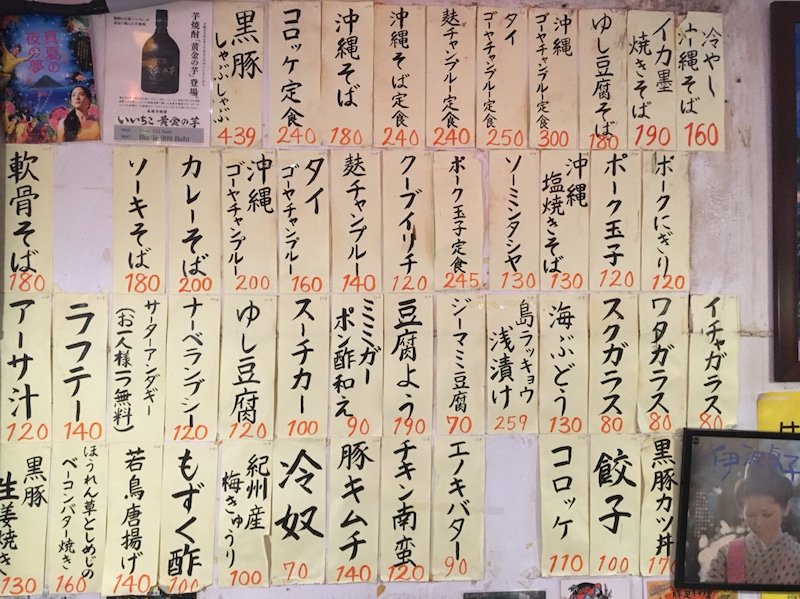 真夏の
夜の夢
芋焼酎「黄金の芋」登場。
いいちこ 黄金の芋
Bottle 999 Baht
黒豚
しゃぶしゃぶ
439
コロッケ定食
240
沖縄そば
180
沖縄そば定食
240
麩チャンプルー定食
240
タイ
ゴーヤチャンプルー定食
250
沖縄
ゴーヤチャンプルー定食
300
ゆし豆腐そば
180
イカ墨
焼きそば
190
冷やし
沖縄そば
160
軟骨そば
180
ソーキそば
180
カレーそば
200
沖縄
ゴーヤチャンプルー
200
タイ
ゴーヤチャンプルー
160
麩チャンプルー
140
クーブイリチ
120
ポーク玉子定食
245
ソーミンタシヤ
130
沖縄
塩焼きそば
130
ポーク玉子
120
ポークにぎり
120
アーサ汁
120
ラフテー
140
サーターアンダギー
(お一人様一つ無料)
ナーベランブシー
120
ゆし豆腐
120
スーチカー
100
ミミガー
ポン酢和え
90
豆腐よう
190
ジーマミ豆腐
70
島ラッキョウ
浅漬け
259
海ぶどう
130
スクガラス
80
ワタガラス
80
イチャガラス
80
黒豚
生姜焼き
130
ほうれん草としめじの
ベーコンバター焼き
160
若鳥唐揚げ
140
もずく酢
100
紀州産
梅きゅうり
100
冷奴
70
豚キムチ
140
チキン南蛮
120
エノキバター
90
コロッケ
110
餃子
100
黒豚カツ丼
170